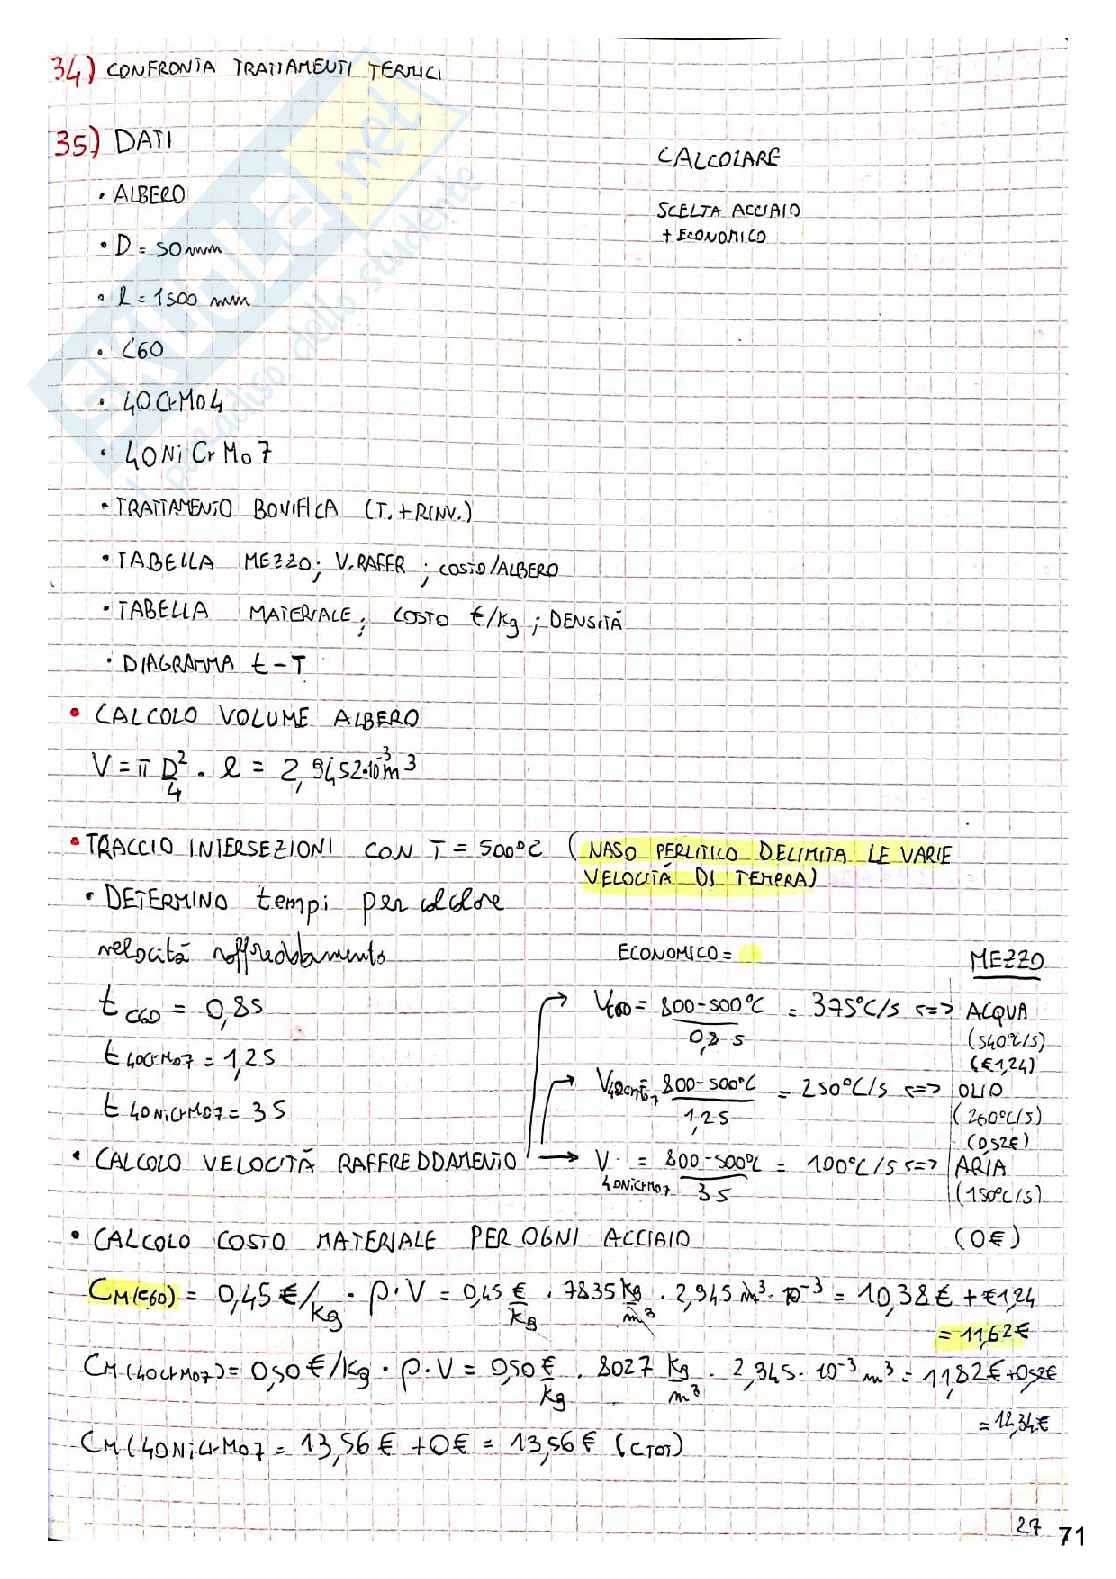 34) CONFRONTA TRATTAMENTI TERMICI
35) DATI
CALCOLARE
• ALBERO
SCELTA ACCIAIO
+ ECONOMICO
• D = 50 mm
• l = 1500 mm
• C60
• 40CrMo4
• 40NiCrMo7
• TRATTAMENTO BONIFICA (T. + RINV.)
• TABELLA MEZZO; V. RAFFR; COSTO/ALBERO
• TABELLA MATERIALE; COSTO €/Kg; DENSITÁ
• DIAGRAMMA t-T
• CALCOLO VOLUME ALBERO
V = π D²/4 . l = 2,9452·10⁻³ m³
• TRACCIO INTERSEZIONI CON T = 500°C (NASO PERLITICO DELIMITA LE VARIE
VELOCITÁ DI TEMPRA)
• DETERMINO tempi per calcolare
velocitá raffreddamento
ECONOMICO =
MEZZO
t C60 = 0,8s
V C60 = 800-500°C / 0,8 s = 375°C/s <=> ACQUA
(540°C/s)
(€1,24)
t 40CrMo7 = 1,2s
V 40CrMo7 = 800-500°C / 1,2s = 250°C/s <=> OLIO
(260°C/s)
(0,52€)
t 40NiCrMo7 = 3s
• CALCOLO VELOCITÁ RAFFREDDAMENTO → V 40NiCrMo7 = 800-500°C / 3s = 100°C/s <=> ARIA
(150°C/s)
(0€)
• CALCOLO COSTO MATERIALE PER OGNI ACCIAIO
CM(C60) = 0,45 €/kg · ρ·V = 0,45 €/kg · 7835 kg/m³ · 2,945 m³·10⁻³ = 10,38€ + €1,24
= 11,62€
CM(40CrMo7) = 0,50 €/Kg · ρ·V = 0,50 €/Kg · 8027 Kg/m³ · 2,945·10⁻³ m³ = 11,82€ + 0,52€
= 12,34€
CM(40NiCrMo7 = 13,56€ + 0€ = 13,56€ (CTOT)
27
71
SKUOLA.net
il paradiso dello studente